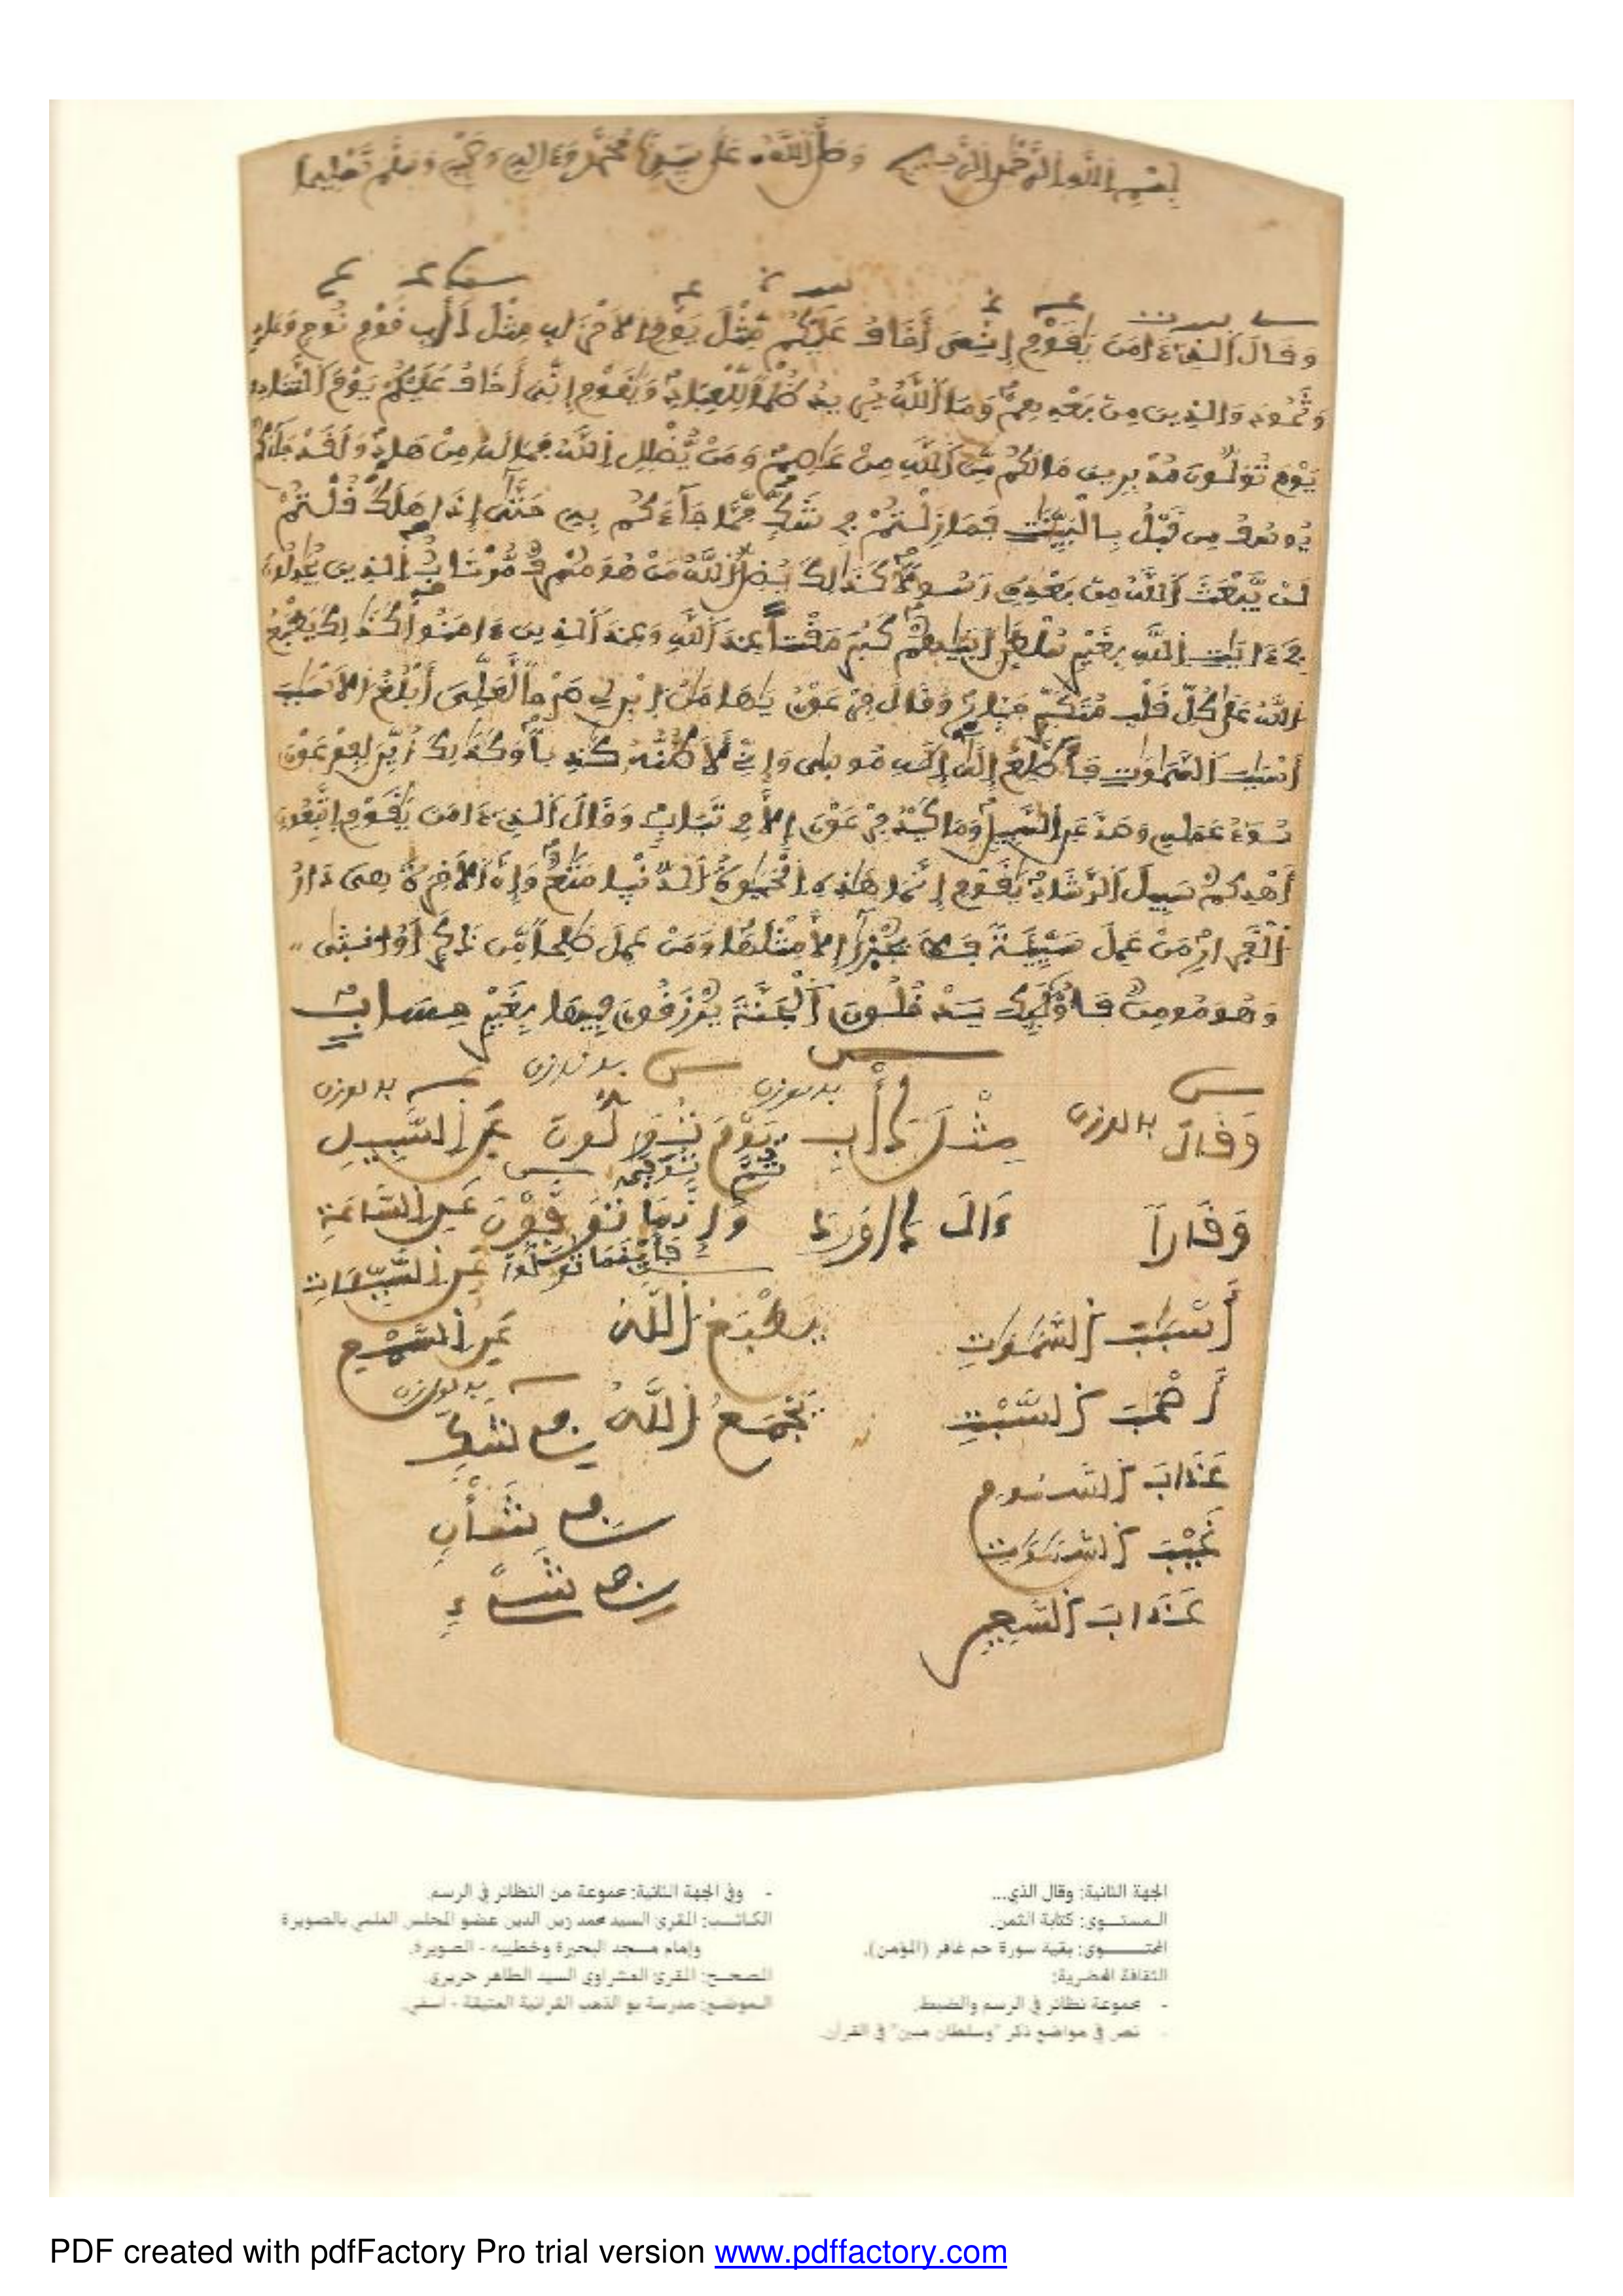 بسم الله الرحمن الرحيم وصلى الله على سيدنا محمد وءاله وصحبه وسلم تسليما
وقال الذي ءامن يقوم إني أخاف عليكم مثل يوم الاحزاب مثل دأب قوم نوح وعاد
وثمود والذين من بعدهم وما الله يريد ظلما للعباد ويقوم إني أخاف عليكم يوم التناد
يوم تولون مدبرين مالكم من الله من عاصم ومن يضلل الله فماله من هاد ولقد جاءكم
يوسف من قبل بالبينت فمازلتم في شك مما جاءكم به حتى إذا هلك قلتم
لن يبعث الله من بعده رسولا كذالك يضل الله من هو مسرف مرتاب الذين يجدلون
في ءايت الله بغير سلطن أتيهم كبر مقتا عند الله وعند الذين ءامنوا كذلك يطبع
الله على كل قلب متكبر جبار وقال فرعون يهامن ابن لي صرحا لعلي أبلغ الاسبب
أسبب السموت فأطلع إلى إله موسى وإني لأظنه كذبا وكذلك زين لفرعون
سوء عمله وصد عن السبيل وما كيد فرعون إلا في تباب وقال الذي ءامن يقوم اتبعون
أهدكم سبيل الرشاد يقوم إنما هذه الحيوة الدنيا متع وإن الاخرة هي دار
القرار من عمل سيئة فلا يجزى إلا مثلها ومن عمل صلحا من ذكر أو انثى
وهو مومن فأولئك يدخلون الجنة يرزقون فيها بغير حساب
وقال مثل دأب يوم تولون عن السبيل
وقارا ءال داوود وإنما توفون عن الساعة
فأينما تولوا عن السيئات
أسبب السموت يطبع الله عن السمع
أصحب السبت يجمع الله في شك
عذاب السموم في شأن
غيب السموت في شيء
عذاب السعير
الجهة الثانية: وقال الذي...
المستوى: كتابة الثمن.
المحتوى: بقية سورة حم غافر (المؤمن).
الثقافة المضرية:
- مجموعة نظائر في الرسم والضبط.
- نص في مواضع ذكر "وسلطان مبين" في القرآن.
- وفي الجهة الثانية: مجموعة من النظائر في الرسم.
الكاتب: المقرئ السيد محمد زين الدين عضو المجلس العلمي بالصويرة
وإمام مسجد البحيرة وخطيبه - الصويرة.
المصحح: المقرئ العشراوي السيد الطاهر حريري.
الموضع: مدرسة بو الذهب القرآنية العتيقة - آسفي.
PDF created with pdfFactory Pro trial version www.pdffactory.com